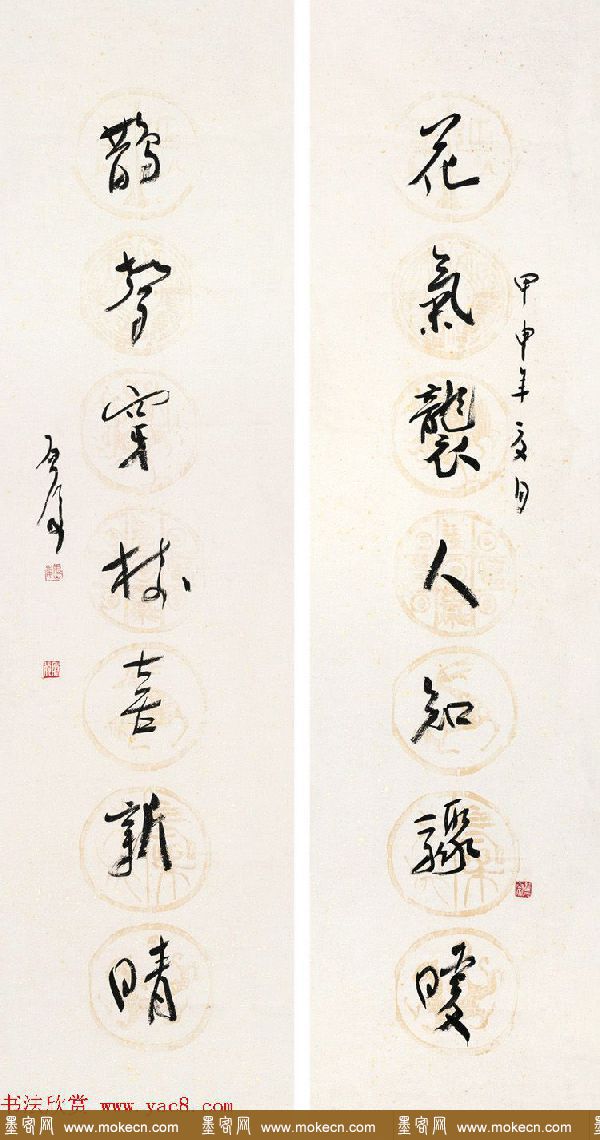 墨客网 www.mokecn.com
花氣襲人知驟暖
甲申年夏月
鵲聲穿樹喜新晴
书法欣赏 www.yac8.com
墨客网 www.mokecn.com 墨客网 www.mokecn.com 墨客网 www.mokecn.com